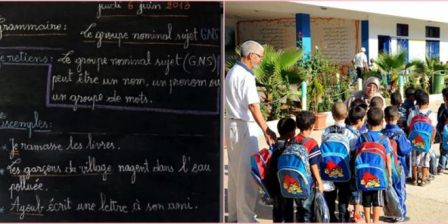 jeudi 6 juin 2013
Grammaire: Le groupe nominal sujet GNS
retiens: Le groupe nominal sujet (GNS)
peut être un nom, un pronom ou
un groupe de mots.
Exemples:
Je ramasse les livres.
Les garçons du village nagent dans l'eau
polluée.
Ayoub écrit une lettre à son ami.